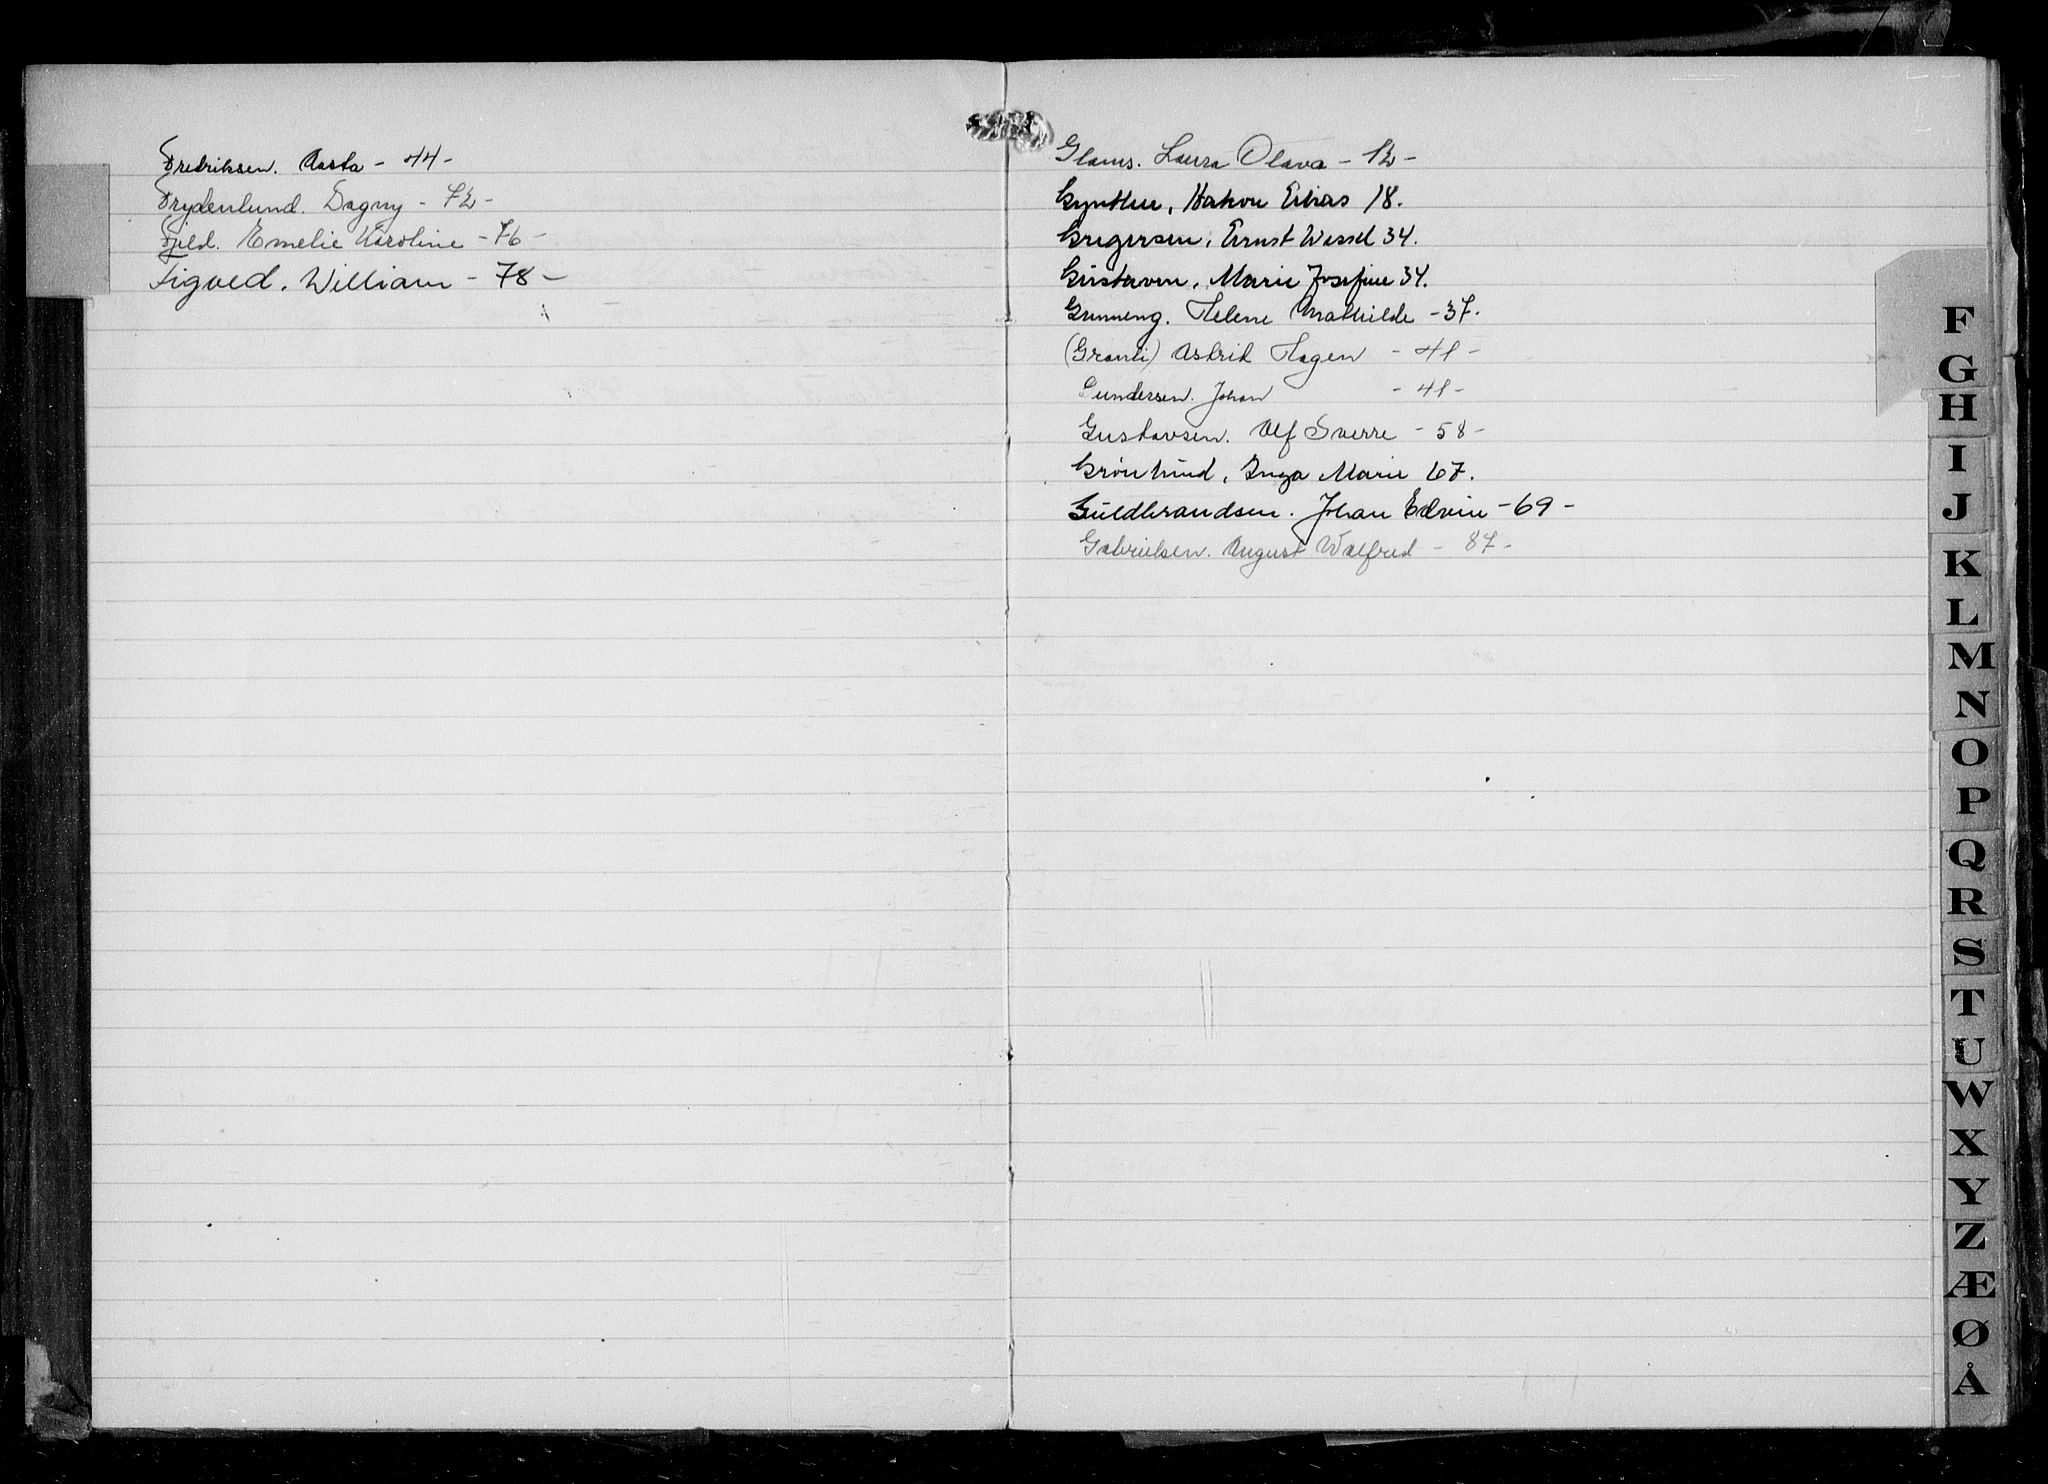 Fredriksen. Aasta - 44 -
Frydenlund. Dagny - 72 -
Fjeld. Emelie Karoline - 76 -
Figved. William - 78 -
Glams. Laura Olava - 12 -
Gynther, Hakon Elias 18.
Gregersen, Ernst Wessel 34.
Gustavsen, Marie Josefine 34.
Grinneng. Helene Mathilde - 37.
(Granli) Astrid Hagen - 41 -
Gundersen. Johan - 41 -
Gustavsen. Alf Sverre - 58 -
Grönlund, Inga Marie 67.
Guldbrandsen. Johan Edvin - 69 -
Gabrielsen. August Walfred - 87 -
F
G
H
I
J
K
L
M
N
O
P
Q
R
S
T
U
W
X
Y
Z
Æ
Ø
Å